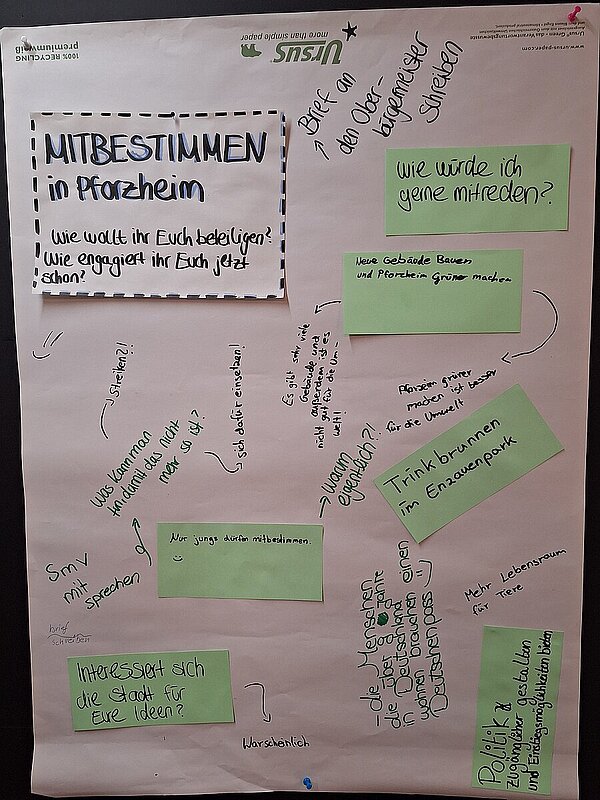 100% RECYCLING
premiumweiß
Ursus
more than simple paper
www.ursus-paper.com
Brief an
den Ober-
bürgermeister
schreiben
MITBESTIMMEN
in Pforzheim
Wie wollt ihr Euch beteiligen?
Wie engagiert ihr Euch jetzt
schon?
Wie würde ich
gerne mitreden?
Neue Gebäude Bauen
und Pforzheim Grüner machen
Es gibt sehr viele
Gebäude und
außerdem ist es
nicht gut für die Um-
welt!
Pforzheim grüner
machen ist besser
für die Umwelt
streiken?!
sich dafür einsetzen!
Was kann man
tun damit das nicht
mehr so ist?
warum
eigentlich?!
Trinkbrunnen
im Enzauenpark
Nur jungs dürfen mitbestimmen.
SMV
mit
sprechen
brief
schreiben
- die Menschen
die über 9 Jahre
in Deutschland
wohnen brauchen einen
Deutschenpass
Mehr Lebensraum
für Tiere
Interessiert sich
die Stadt für
Eure Ideen?
Warscheinlich
Politik
zugänglicher gestalten
und Einstiegsmöglichkeiten bieten